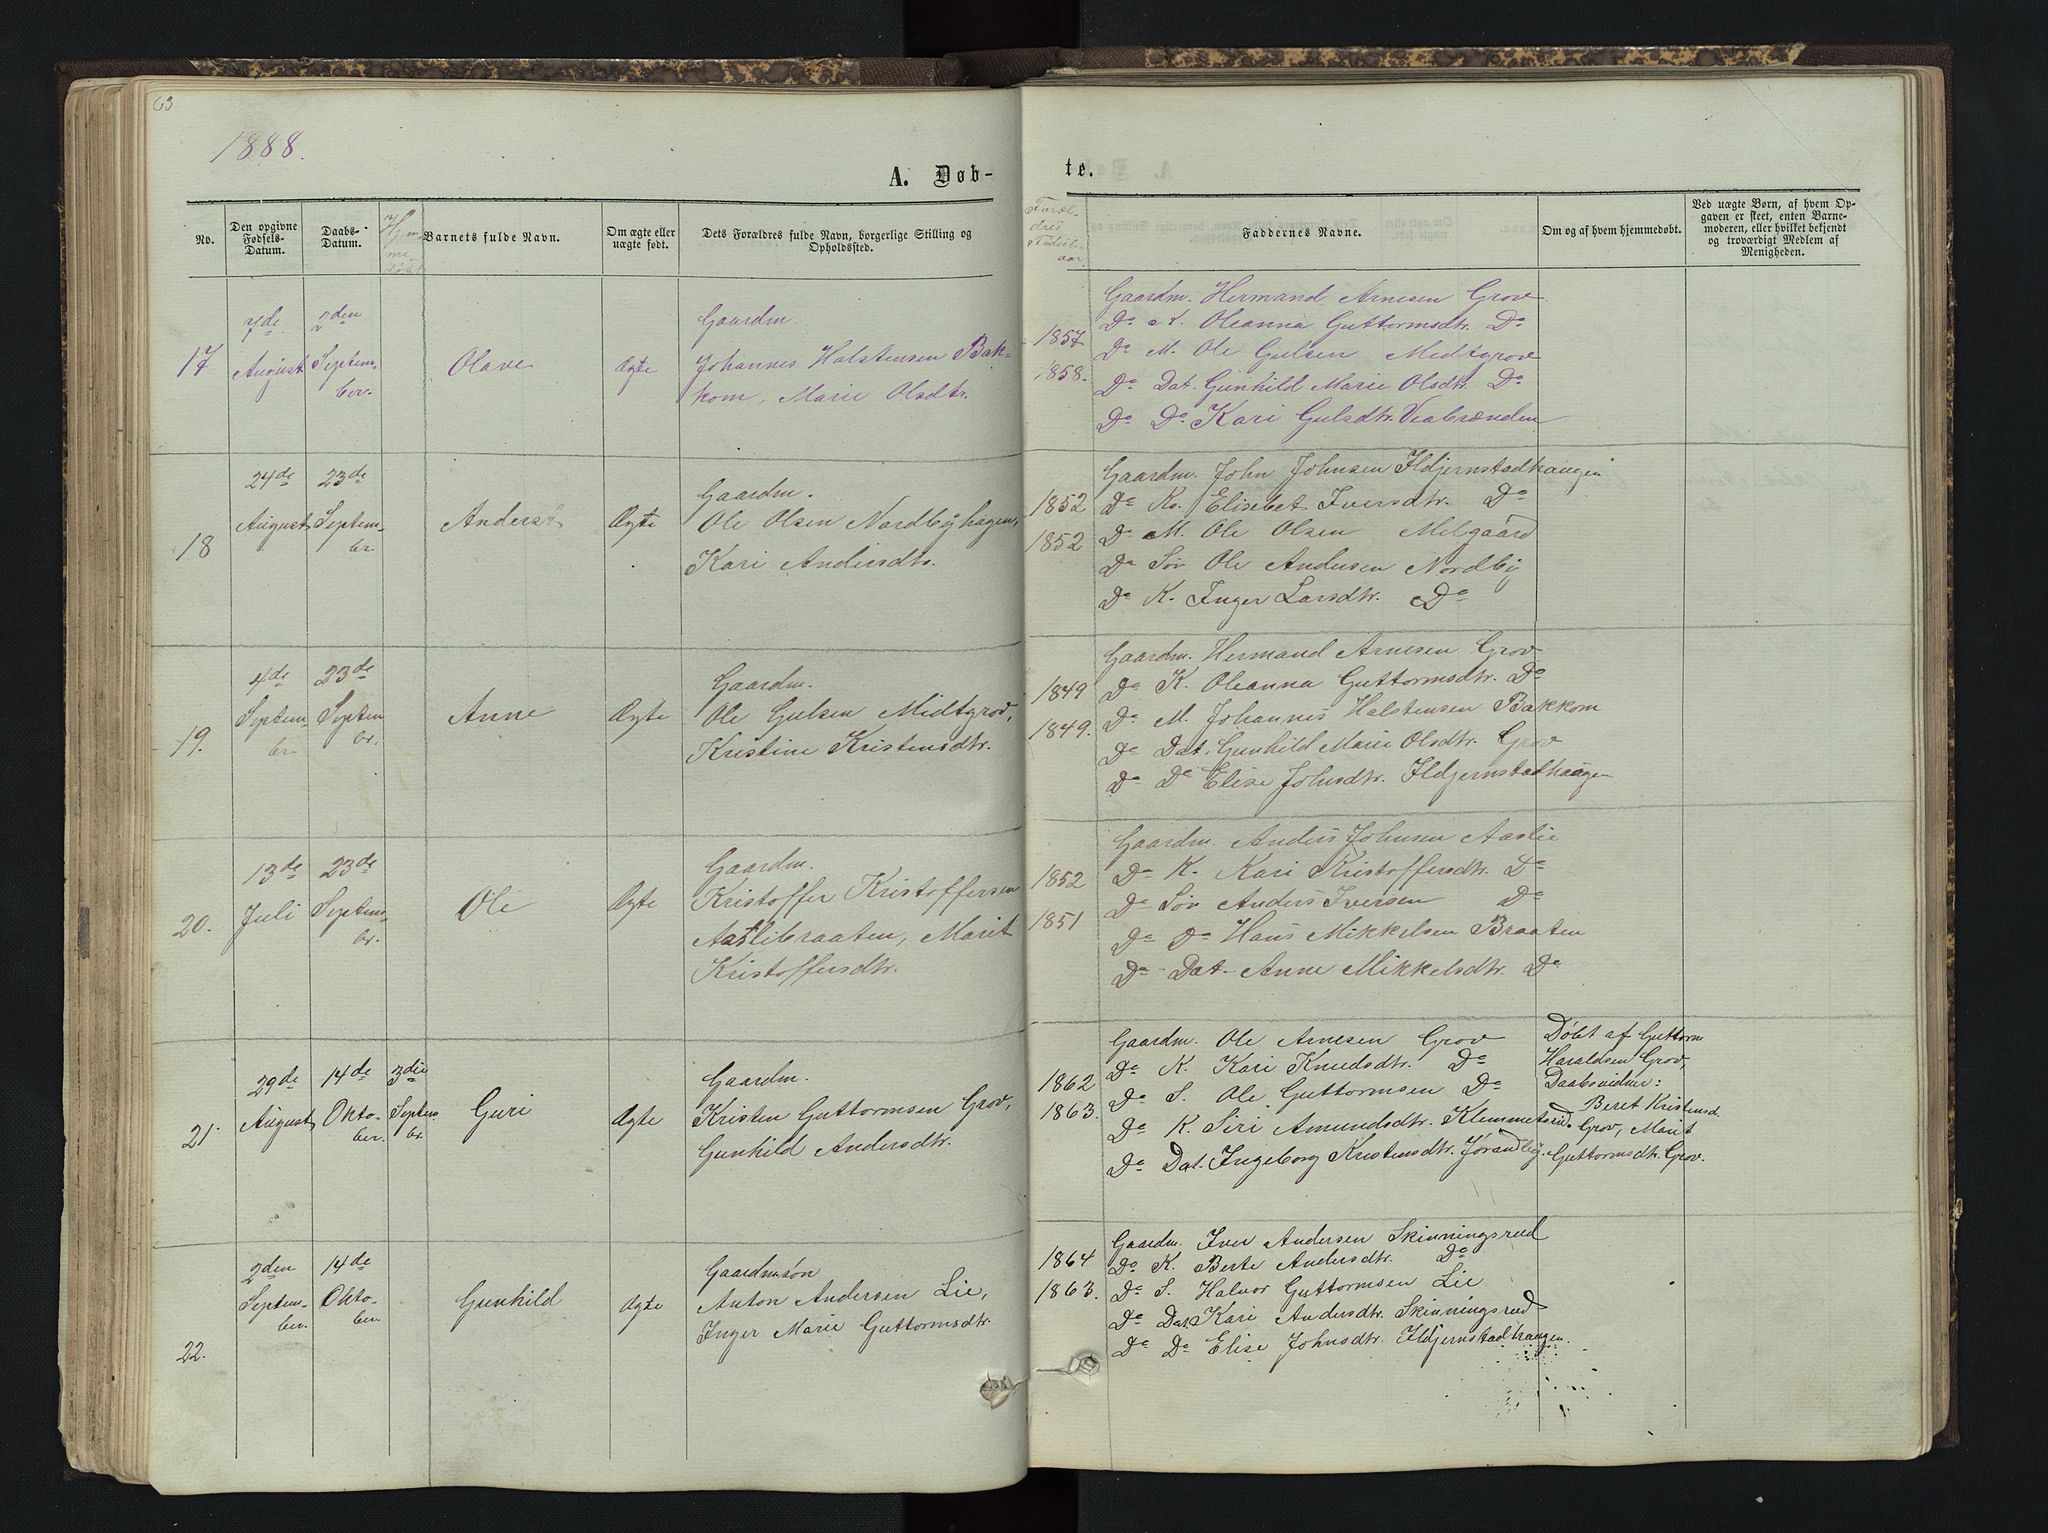 63
1888.
A. Døb-
te.
No.
Den opgivne Fødsels-Datum.
Daabs-Datum.
Hjem-
me
døbt
Barnets fulde Navn.
Om ægte eller uægte født.
Dets Forældres fulde Navn, borgerlige Stilling og Opholdssted.
Foræl-
dres
Fødsels-
aar
Faddernes Navne.
Om og af hvem hjemmedøbt.
Ved uægte Børn, af hvem Op-
gaven er skeet, enten Barne-
moderen, eller hvilket bekjendt
og troværdigt Medlem af
Menigheden.
17
7de
August
2den
Septem-
ber.
Olave
Ægte
Gaardm.
Johannes Halstensen Bak-
kom, Marie Olsdtr.
1857
1858.
Gaardm. Hermand Arnesen Grov
Do K. Oleanna Guttormsdtr. Do
Do M. Ole Gulsen Midtgrov
Do Dat. Gunhild Marie Olsdtr. Do
Do Do Kari Gulsdtr. Viabrænden
18
24de
August
23de
Septem-
ber.
Anders
Ægte
Gaardm.
Ole Olsen Nordbyhagen,
Kari Andersdtr.
1852
1852
Gaardm. John Johnsen Ildjernstadhaugen
Do Ko. Elisebet Iversdtr. Do
Do M. Ole Olsen Melgaard
Do Søn Ole Andersen Nordby
Do K. Inger Larsdtr. Do
19.
4de
Septem-
ber.
23de
Septem
br.
Anne
Ægte
Gaardm.
Ole Gulsen Midtgrov,
Kristine Kristensdtr.
1849
1849.
Gaardm. Hermand Arnesen Grov
Do K. Oleanna Guttormsdtr. Do
Do M. Johannes Halstensen Bakkom
Do Dat. Gunhild Marie Olsdtr. Grov
Do Do Elise Johnsdtr. Ildjernstadhaugen
20.
13de
Juli
23de
Septem-
br.
Ole
Ægte
Gaardm.
Kristoffer Kristoffersen
Aaslibraaten, Marit
Kristoffersdtr.
1852
1851
Gaardm. Anders Johnsen Aaslie
Do K. Kari Kristoffersdtr. Do
Do Søn Anders Iversen Do
Do Do Hans Mikkelsen Braaten
Do Dat. Anne Mikkelsdtr. Do
21.
29de
August
14de
Okto-
ber.
3die
Septem
br.
Guri
Ægte
Gaardm.
Kristen Guttormsen Grov,
Gunhild Andersdtr.
1862
1863.
Gaardm. Ole Arnesen Grov
Do K. Kari Knudsdtr. Do
Do S. Ole Guttormsen Do
Do K. Siri Amundsdtr. Klemmetsrud.
Do Dat. Ingeborg Kristensdtr. Jørandby.
Døbt af Guttorm
Haraldsen Grov,
Daabsvidner:
Beret Kristensd.
Grov, Marit
Guttormsdtr. Grov.
22.
2den
Septem-
ber.
14de
Okto-
ber.
Gunhild
Ægte
Gaardmsøn
Anton Andersen Lie,
Inger Marie Guttormsdtr.
1864
1863.
Gaardm. Iver Andersen Skinningsrud
Do K. Berte Andersdtr. Do
Do S. Halvor Guttormsen Lie
Do Dat. Kari Andersdtr. Skinningsrud
Do Do Elise Johnsdtr. Ildjernstadhaugen.